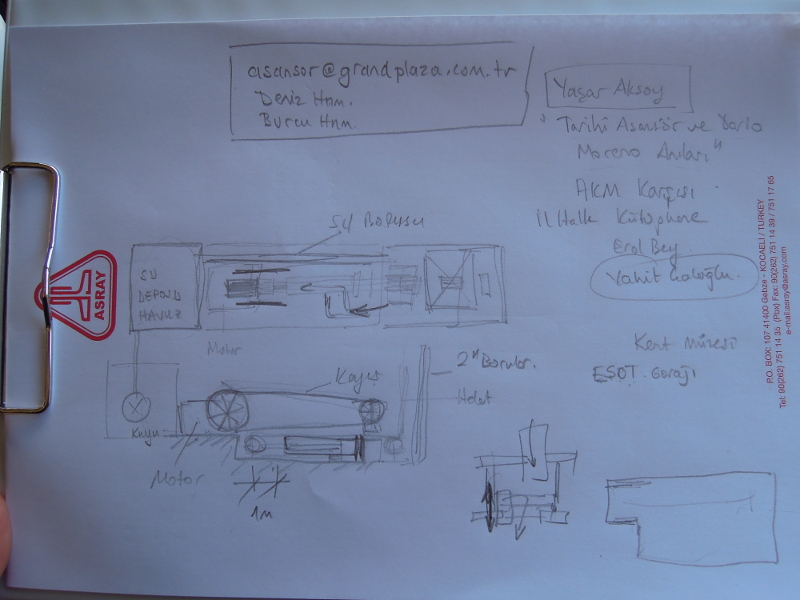 asansor@grandplaza.com.tr
Deniz Hnm.
Burcu Hnm.
Yaşar Aksoy
"Tarihi Asansör ve Dario
Moreno Anıları"
AKM Karşısı
İl Halk Kütüphane
Erol Bey
Vahit
Kent Müzesi
ESOT Garajı
SU BORUSU
SU
DEPOSU
HAVUZ
Motor
Kayış
2" Borular.
Halat
Kuyu
Motor
1m
ASRAY
P.O. BOX: 107 41400 Gebze - KOCAELİ / TURKEY
Tel: 90(262) 751 14 35 (Pbx) Fax: 90(262) 751 14 39 / 751 17 65
e-mail:asray@asray.com